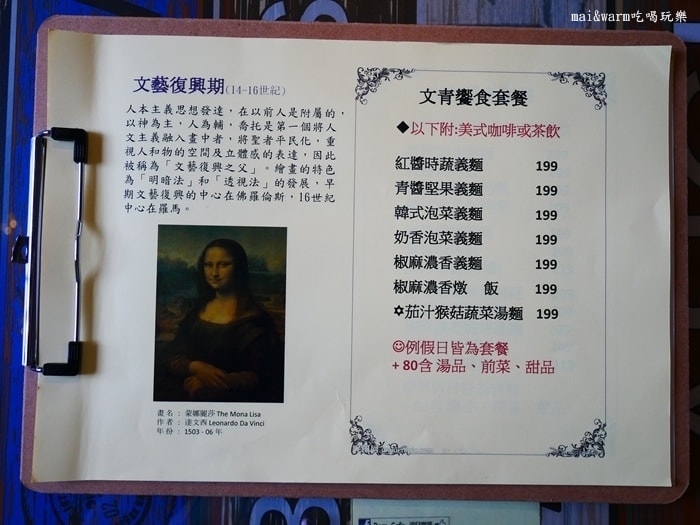 mai&warm吃喝玩樂
文藝復興期(14-16世紀)
人本主義思想發達，在以前人是附屬的，
以神為主，人為輔，喬托是第一個將人
文主義融入畫中者，將聖者平民化，重
視人和物的空間及立體感的表達，因此
被稱為「文藝復興之父」。繪畫的特色
為「明暗法」和「透視法」的發展，早
期文藝復興的中心在佛羅倫斯，16世紀
中心在羅馬。
畫名 : 蒙娜麗莎 The Mona Lisa
作者 : 達文西 Leonardo Da Vinci
年份 : 1503 - 06 年
文青饗食套餐
◆以下附:美式咖啡或茶飲
紅醬時蔬義麵 199
青醬堅果義麵 199
韓式泡菜義麵 199
奶香泡菜義麵 199
椒麻濃香義麵 199
椒麻濃香燉 飯 199
✡茄汁猴菇蔬菜湯麵 199
☺例假日皆為套餐
+ 80含 湯品、前菜、甜品